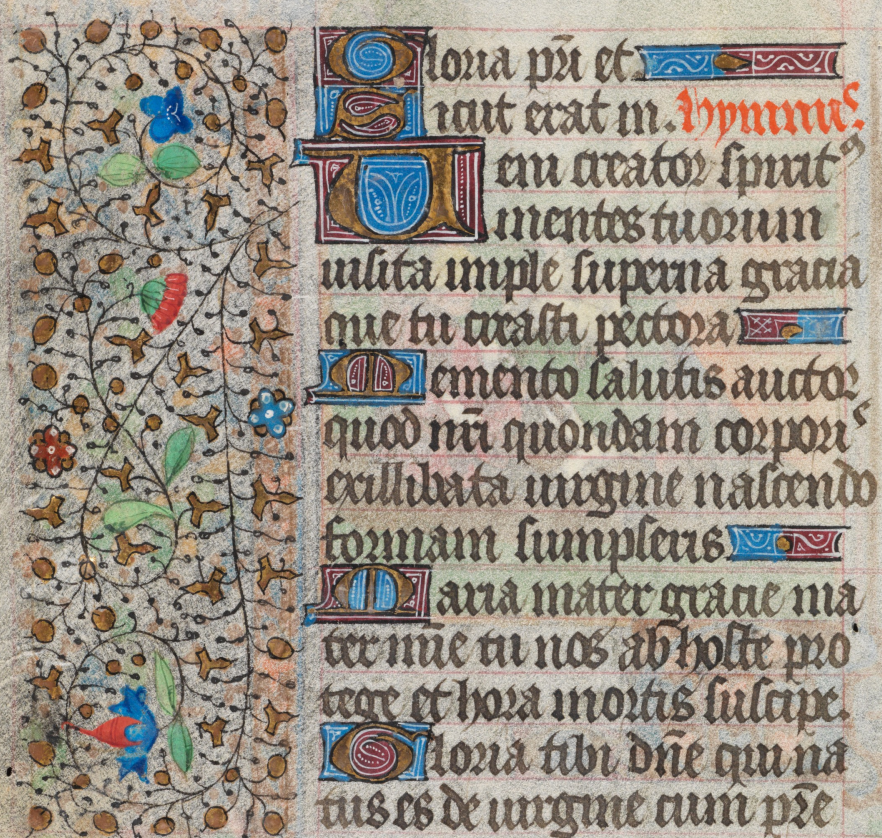 Gloria pr̄i et
Sicut erat in. Hymnus.
Ueni creator spiritꝰ
mentes tuorum
uisita imple superna gracia
que tu creasti pectora
Memento salutis auctor
quod nr̄i quondam corporis
exillibata uirgine nascendo
formam sumpseris.
Maria mater gracie ma
ter mīe tu nos ab hoste pro
tege et hora mortis suscipe.
Gloria tibi dn̄e qui na
tus es de uirgine cum pr̄e